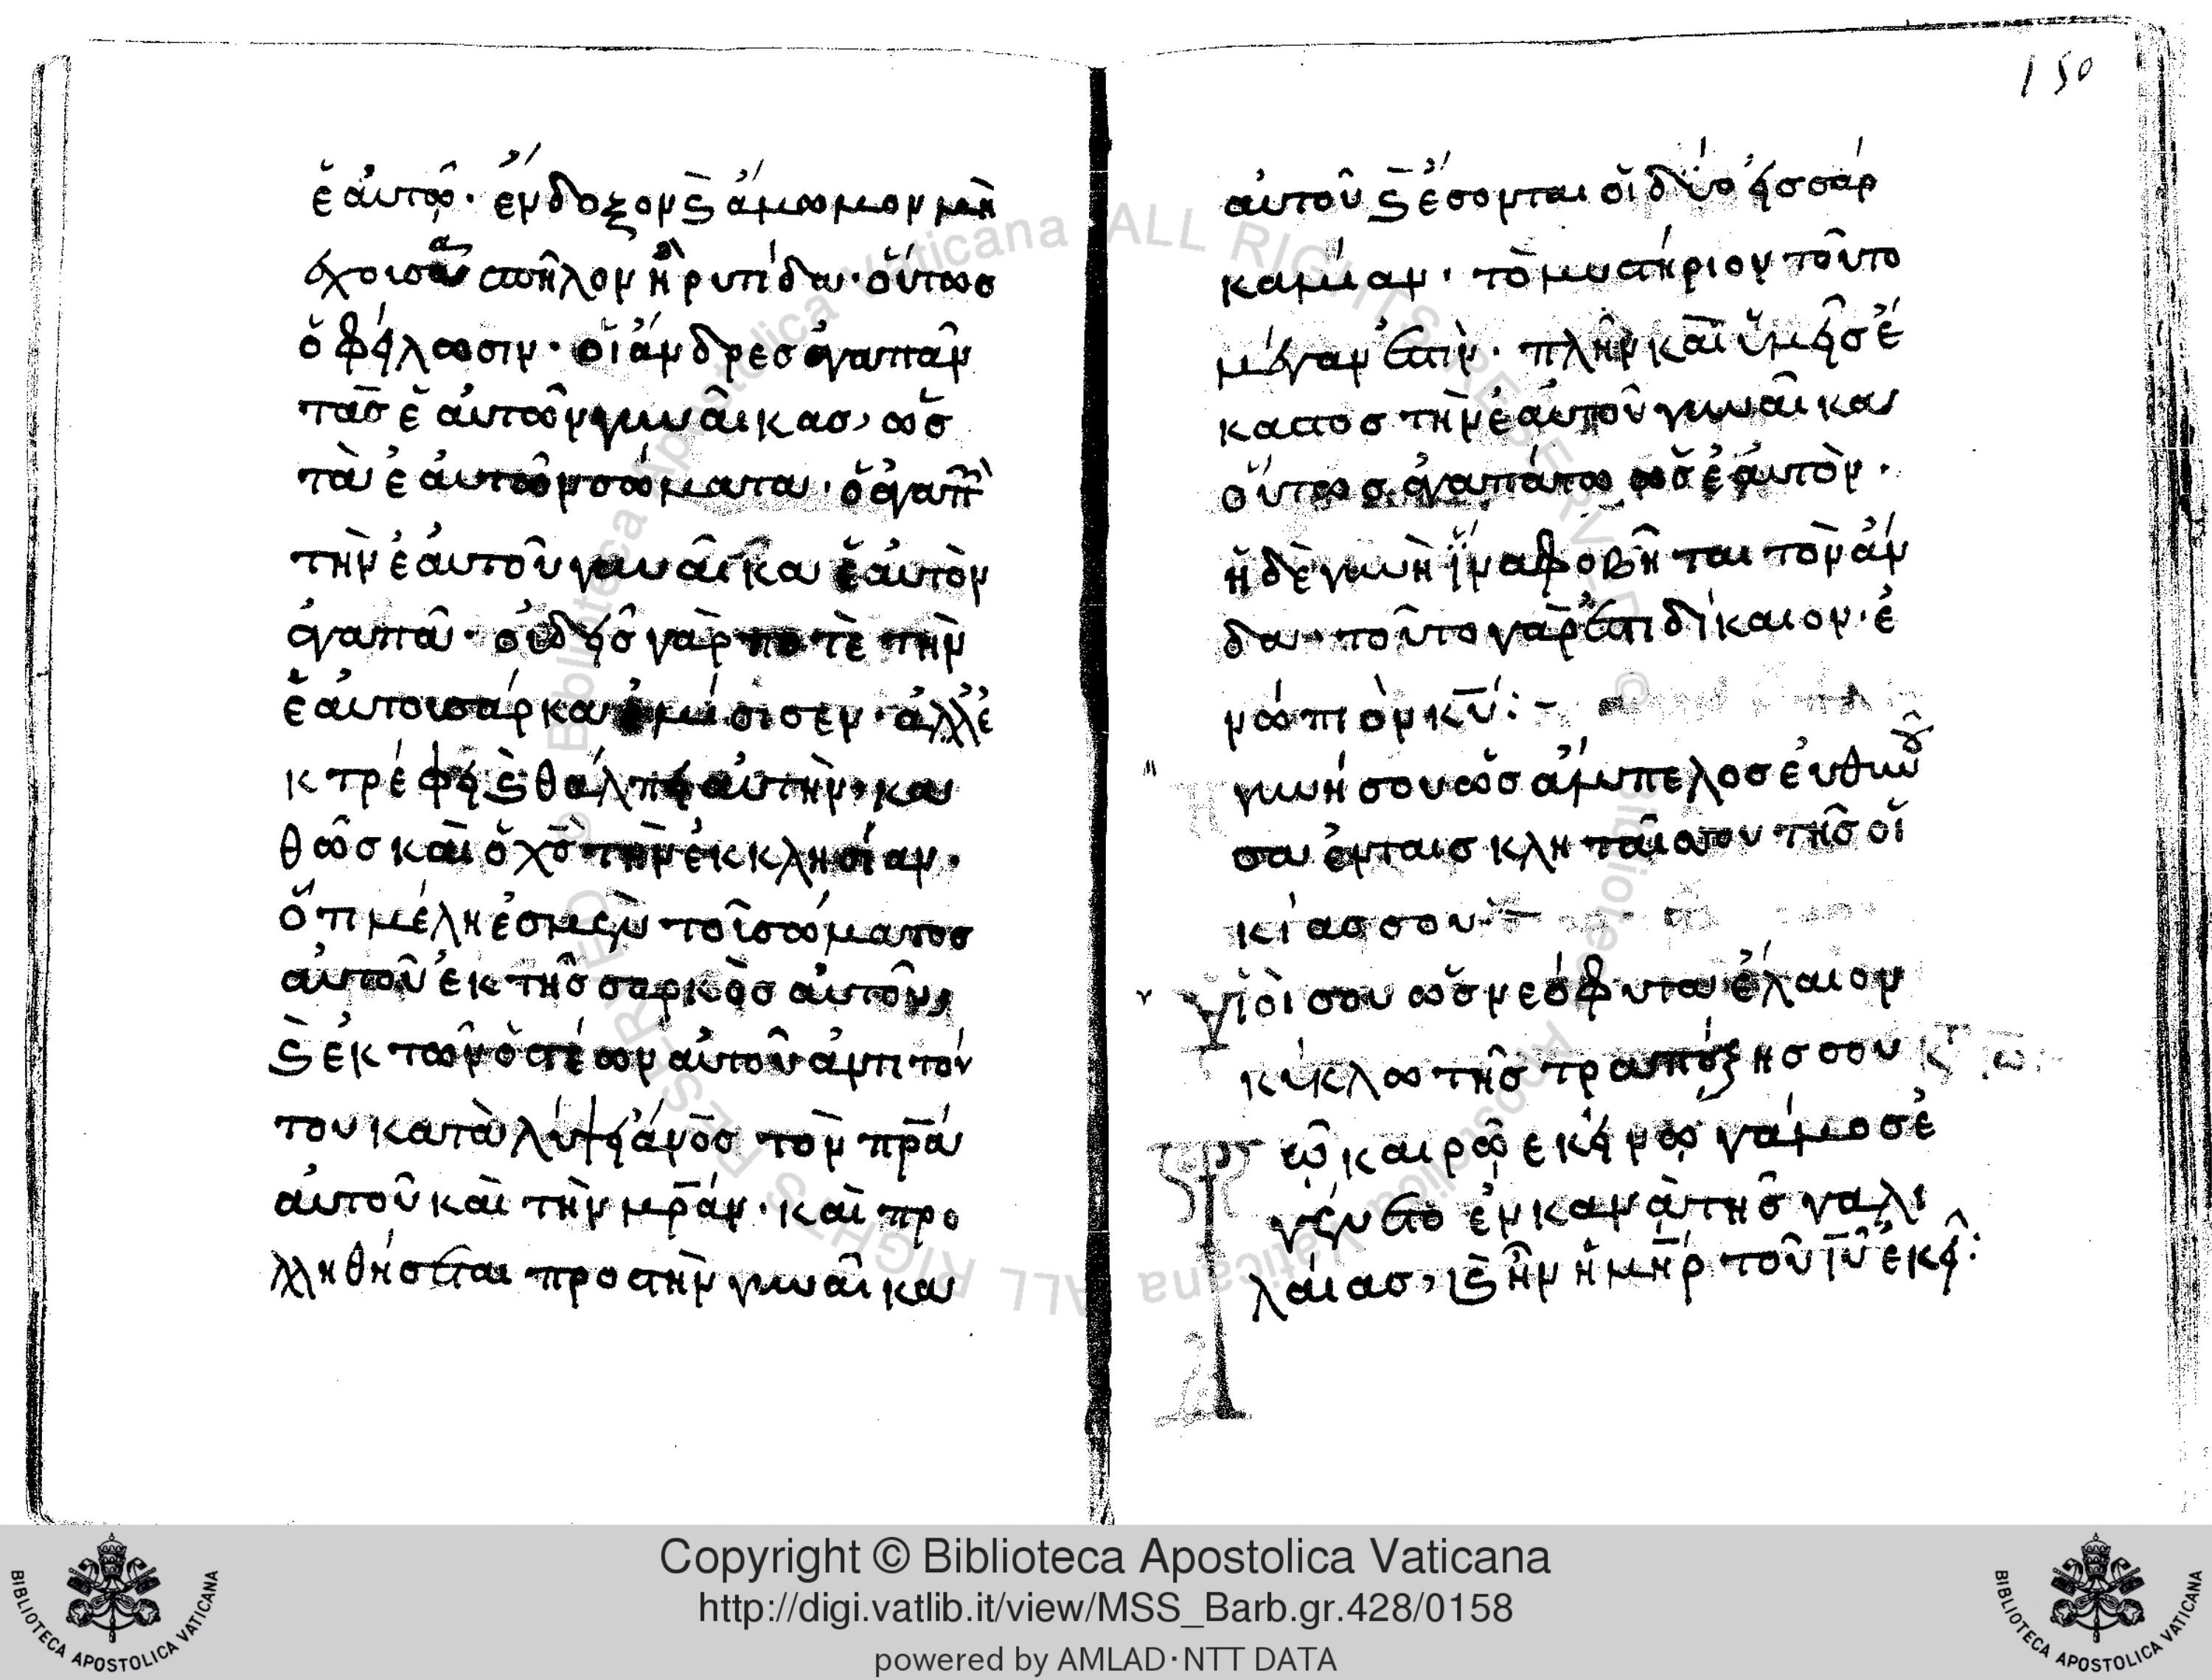 150
ἑ ἀυτῶ· ἔνδοξον ϛ ἄμωμον μὴ
ἔχουσαν σπῆλον ἢ ρυτίδα· οὕτωσ
ὀφείλωσιν· οἱ ἄνδρεσ ἀγαπᾶν
τὰσ ἑ ἀυτῶν γυναῖκασ, ὡσ
τὰ ἑ ἀυτῶν σώματα· ὁ ἀγαπῶν
τὴν ἑ ἀυτοῦ γυναῖκα ἑ ἀυτὸν
ἀγαπᾶ· οὐδεὶσ γὰρ ποτὲ τὴν
ἑ ἀυτου σάρκα ἐμίσισεν· ἀλλ ἐ
κτρέφει ϛ θάλπει ἀυτὴν· κα
θὼσ καὶ ὁ χσ τὴν ἐκκλησίαν·
ὅτι μέλη ἐσμεν τοῦ σώματοσ
ἀυτοῦ ἐκ τῆσ σαρκὸσ ἀυτοῦ,
ϛ ἐκ τῶν ὀστέων ἀυτοῦ ἀντι τού
του καταλύψει ἄνοσ τὸν πρα
ἀυτοῦ καὶ τὴν μραν· καὶ προ
λληθήσεται προσ τὴν γυναῖκα
ἀυτοῦ ϛ ἔσονται οἱ δύο εἰσ σάρ
κα μίαν· τὸ μυστήριον τοῦτο
μέγαν ἐστὶν· πλὴν καὶ ὑμεῖσ ἕ
καστοσ τὴν ἑ ἀυτοῦ γυναῖκα
οὕτωσ ἀγαπάτω ὡσ ἑ ἀυτὸν·
ἡ δὲ γυνὴ ἵνα φοβῆται τὸν ἄν
δρα· τοῦτο γὰρ ἐστι δίκαιον· ἐ
νώπιον κυ:-
γυνή σου ὡσ ἄμπελοσ ἐυθυνοῦ
σα ἐν ταισ κληταῖσ του τῆσ οἰ
κίασ σου
ὑἱοὶ σου ὡσ νεόφυτα ἐλαιον
κύκλω τῆσ τραπέζησ σου
Τῶ καιρῶ εκείνω γάμοσ ἐ
γένετο ἐν κανᾶ τησ γαλι
λαίασ, ϛ ἦν ἡ μηρ τοῦ ιυ ἐκεῖ:
Copyright © Biblioteca Apostolica Vaticana
http://digi.vatlib.it/view/MSS_Barb.gr.428/0158
powered by AMLAD·NTT DATA
BIBLIOTECA APOSTOLICA VATICANA
BIBLIOTECA APOSTOLICA VATICANA